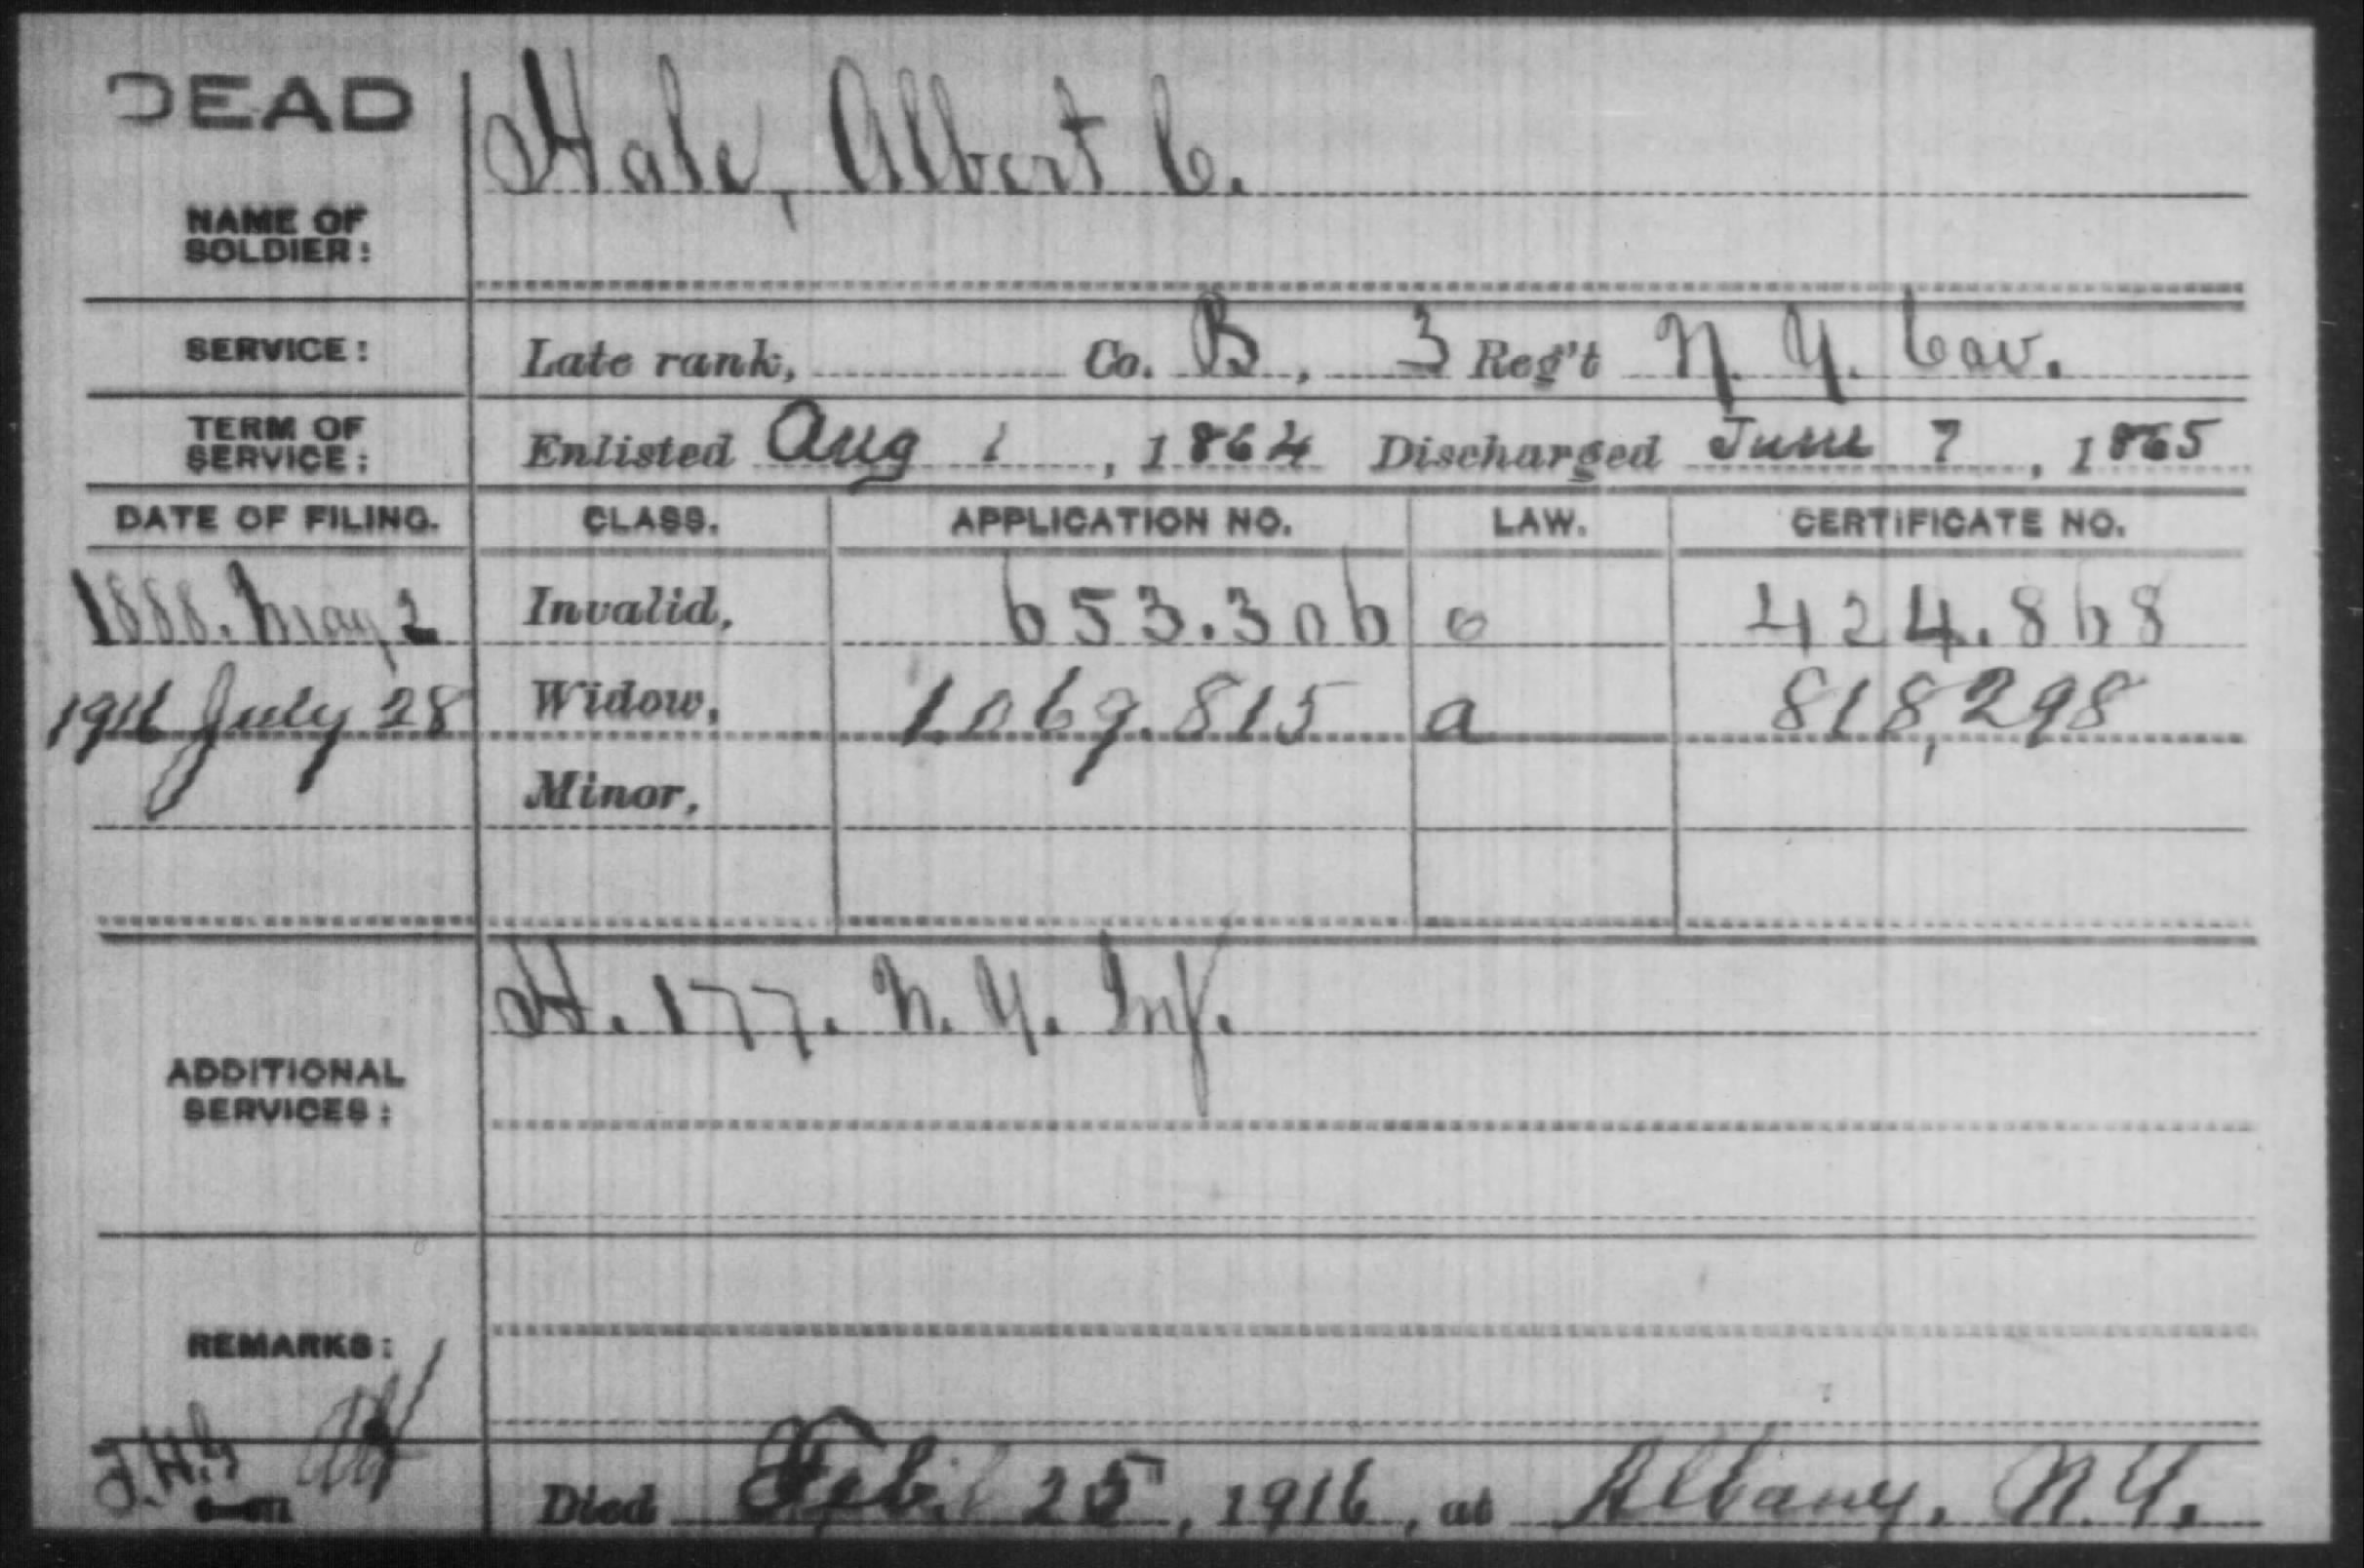 DEAD
Hale, Albert C.
NAME OF
SOLDIER:
SERVICE: Late rank, Co. B, 3 Reg't N. Y. Cav.
TERM OF
SERVICE: Enlisted Aug 1, 1864 Discharged June 7, 1865
DATE OF FILING. CLASS. APPLICATION NO. LAW. CERTIFICATE NO.
1888. May 2 Invalid, 653.306 424.868
1916 July 28 Widow, 1.069.815 a 818,298
Minor,
H. 177. N. Y. Inf.
ADDITIONAL
SERVICES:
REMARKS:
Died Feb. 25, 1916, at Albany, N.Y.